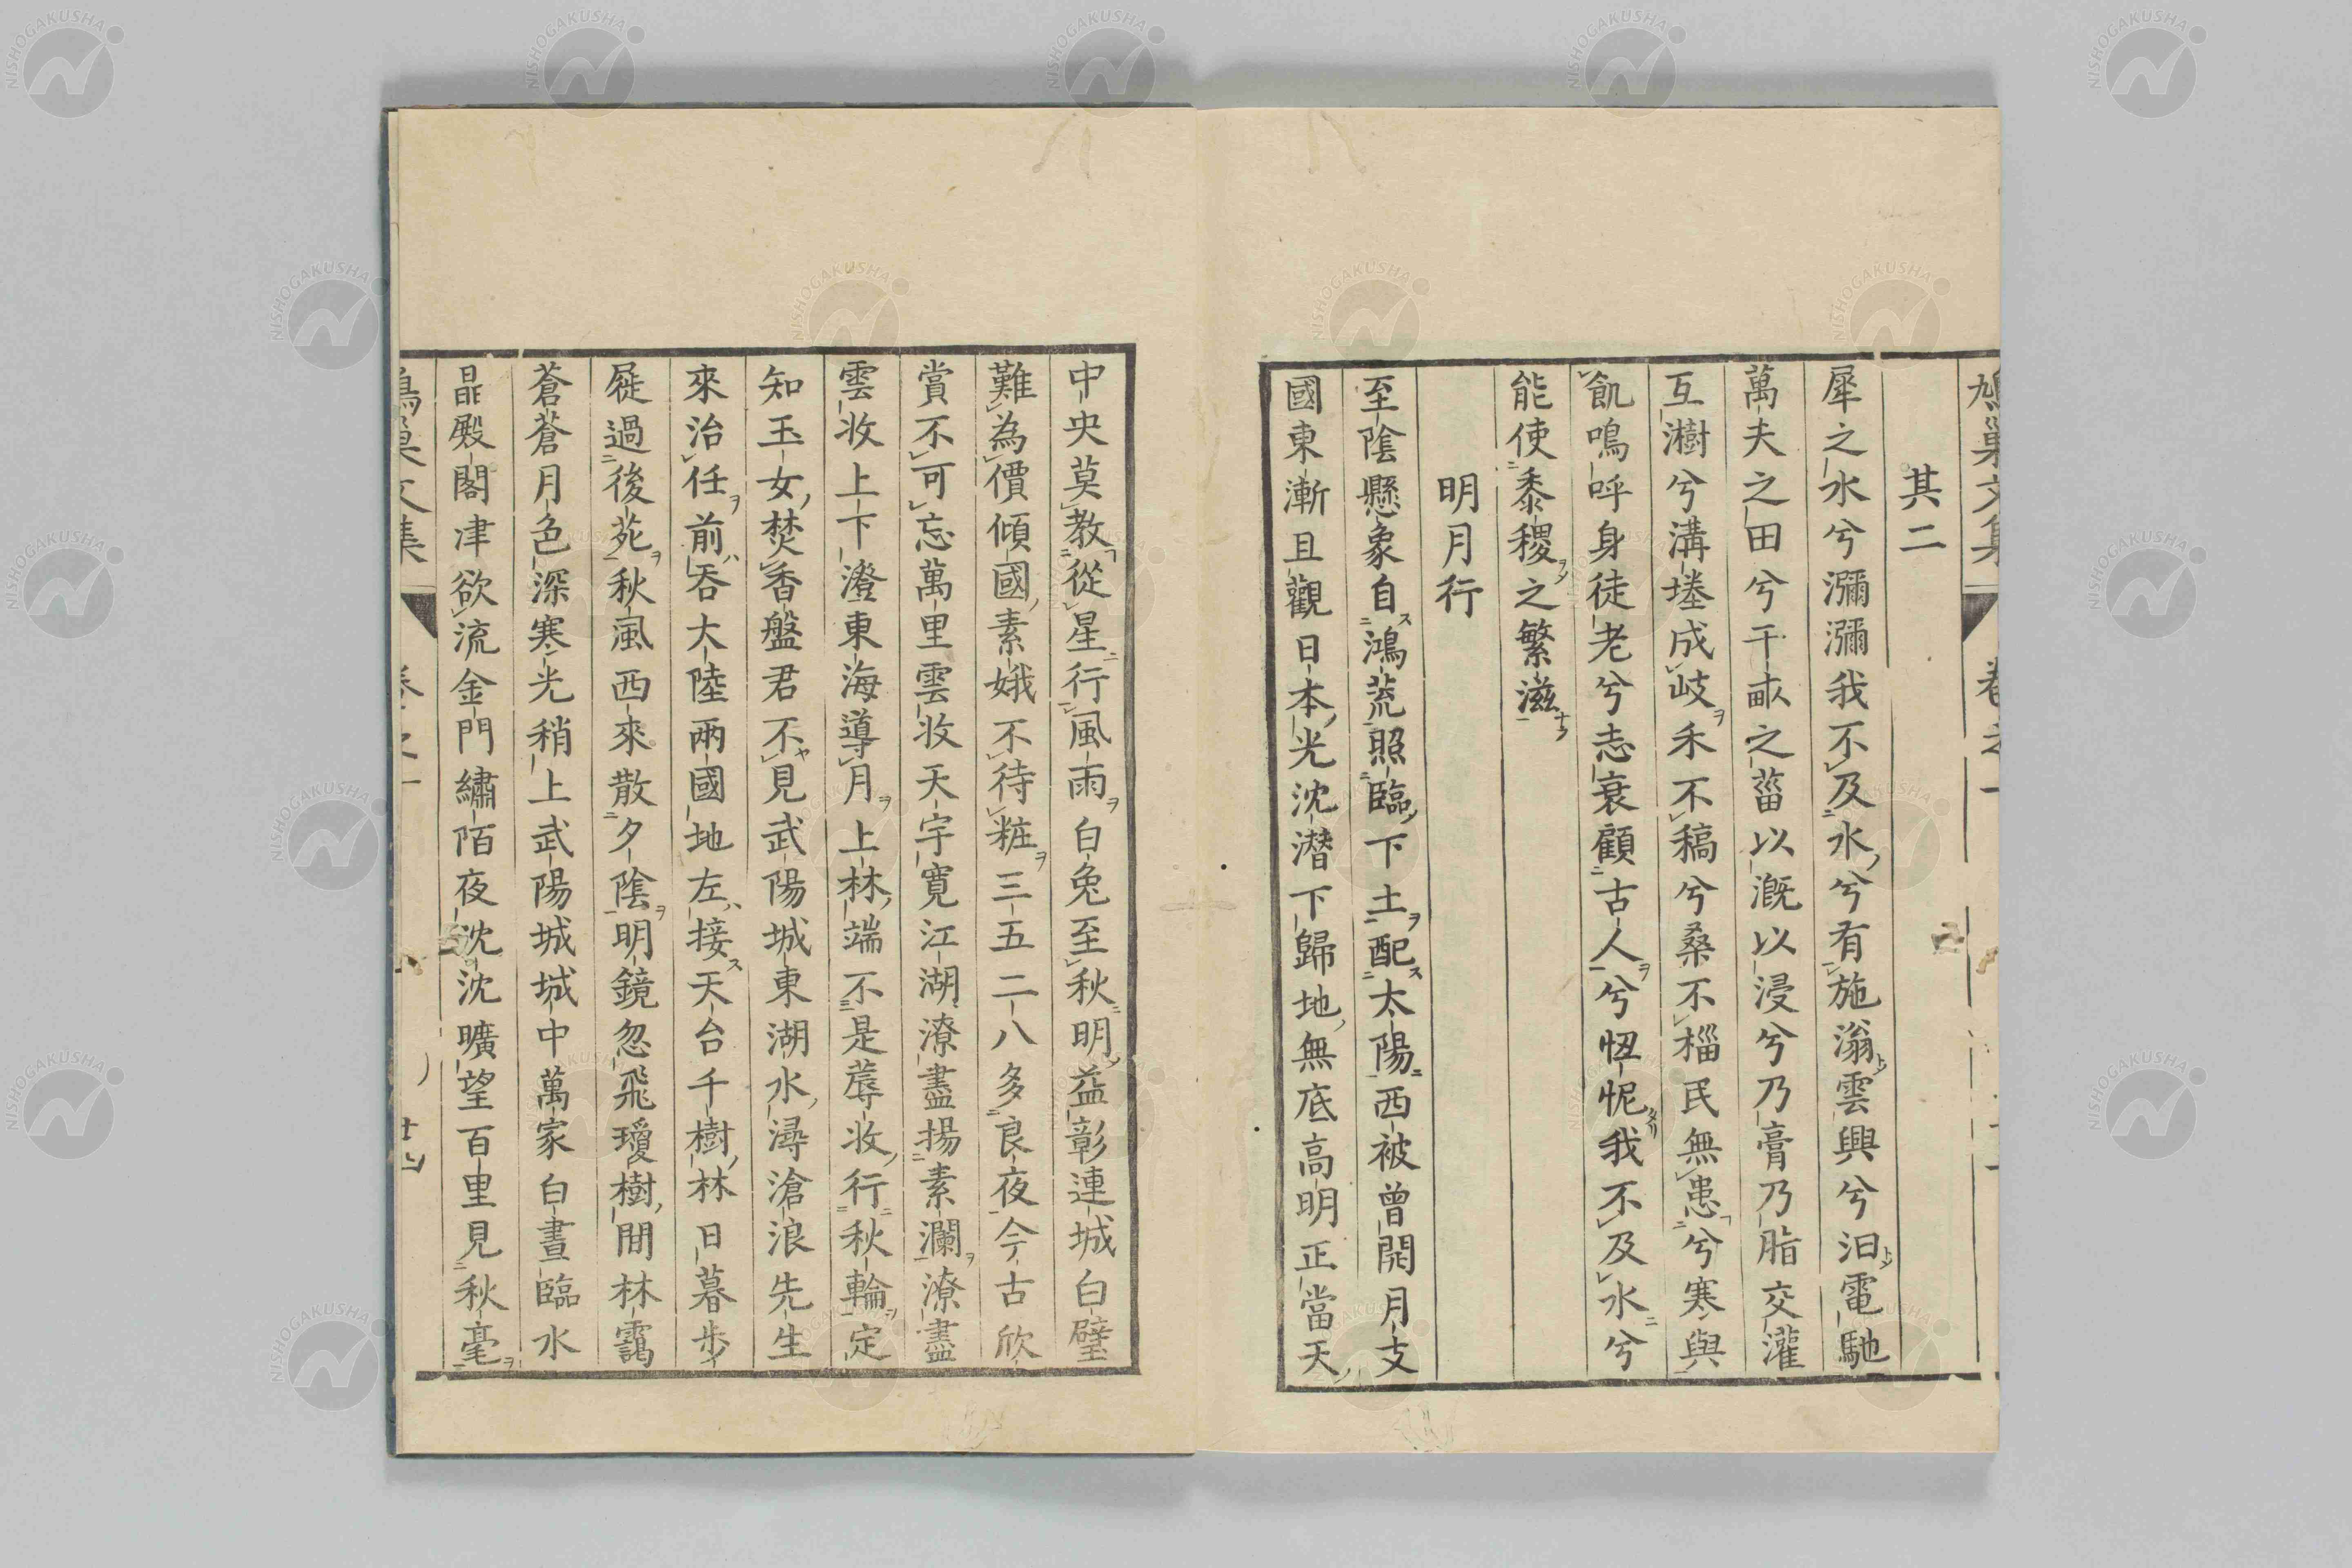 鳩巢文集
卷之一
其二
犀之水兮瀰瀰我不及水兮有施滃雲興兮汩電馳
萬夫之田兮千畝之菑以漑以浸兮乃膏乃脂交灌
互澍兮溝塍成岐禾不稿兮桑不椔民無患兮寒與
飢嗚呼身徒老兮志衰顧古人兮忸怩我不及水兮
能使黍稷之繁滋
明月行
至陰懸象自鴻荒照臨下土配太陽西被曾開月支
國東漸且觀日本光沈潛下歸地無底高明正當天
中央莫教從星行風雨白兔至秋明益彰連城白璧
難為價傾國素娥不待粧三五二八多良夜今古欣
賞不可忘萬里雲收天宇寬江湖潦盡揚素瀾潦盡
雲收上下澄東海導月上林端不是蓐收行秋輪定
知玉女焚香盤君不見武陽城東湖水潯滄浪先生
來治任前吞大陸兩國地左接天台千樹林日暮步
屣過後苑秋風西來散夕陰明鏡忽飛瓊樹間林靄
蒼蒼月色深寒光稍上武陽城城中萬家白晝臨水
晶殿閣津欲流金門繡陌夜沈沈曠望百里見秋毫
鳩巢文集
卷之一
廿四
NISHOGAKUSHA